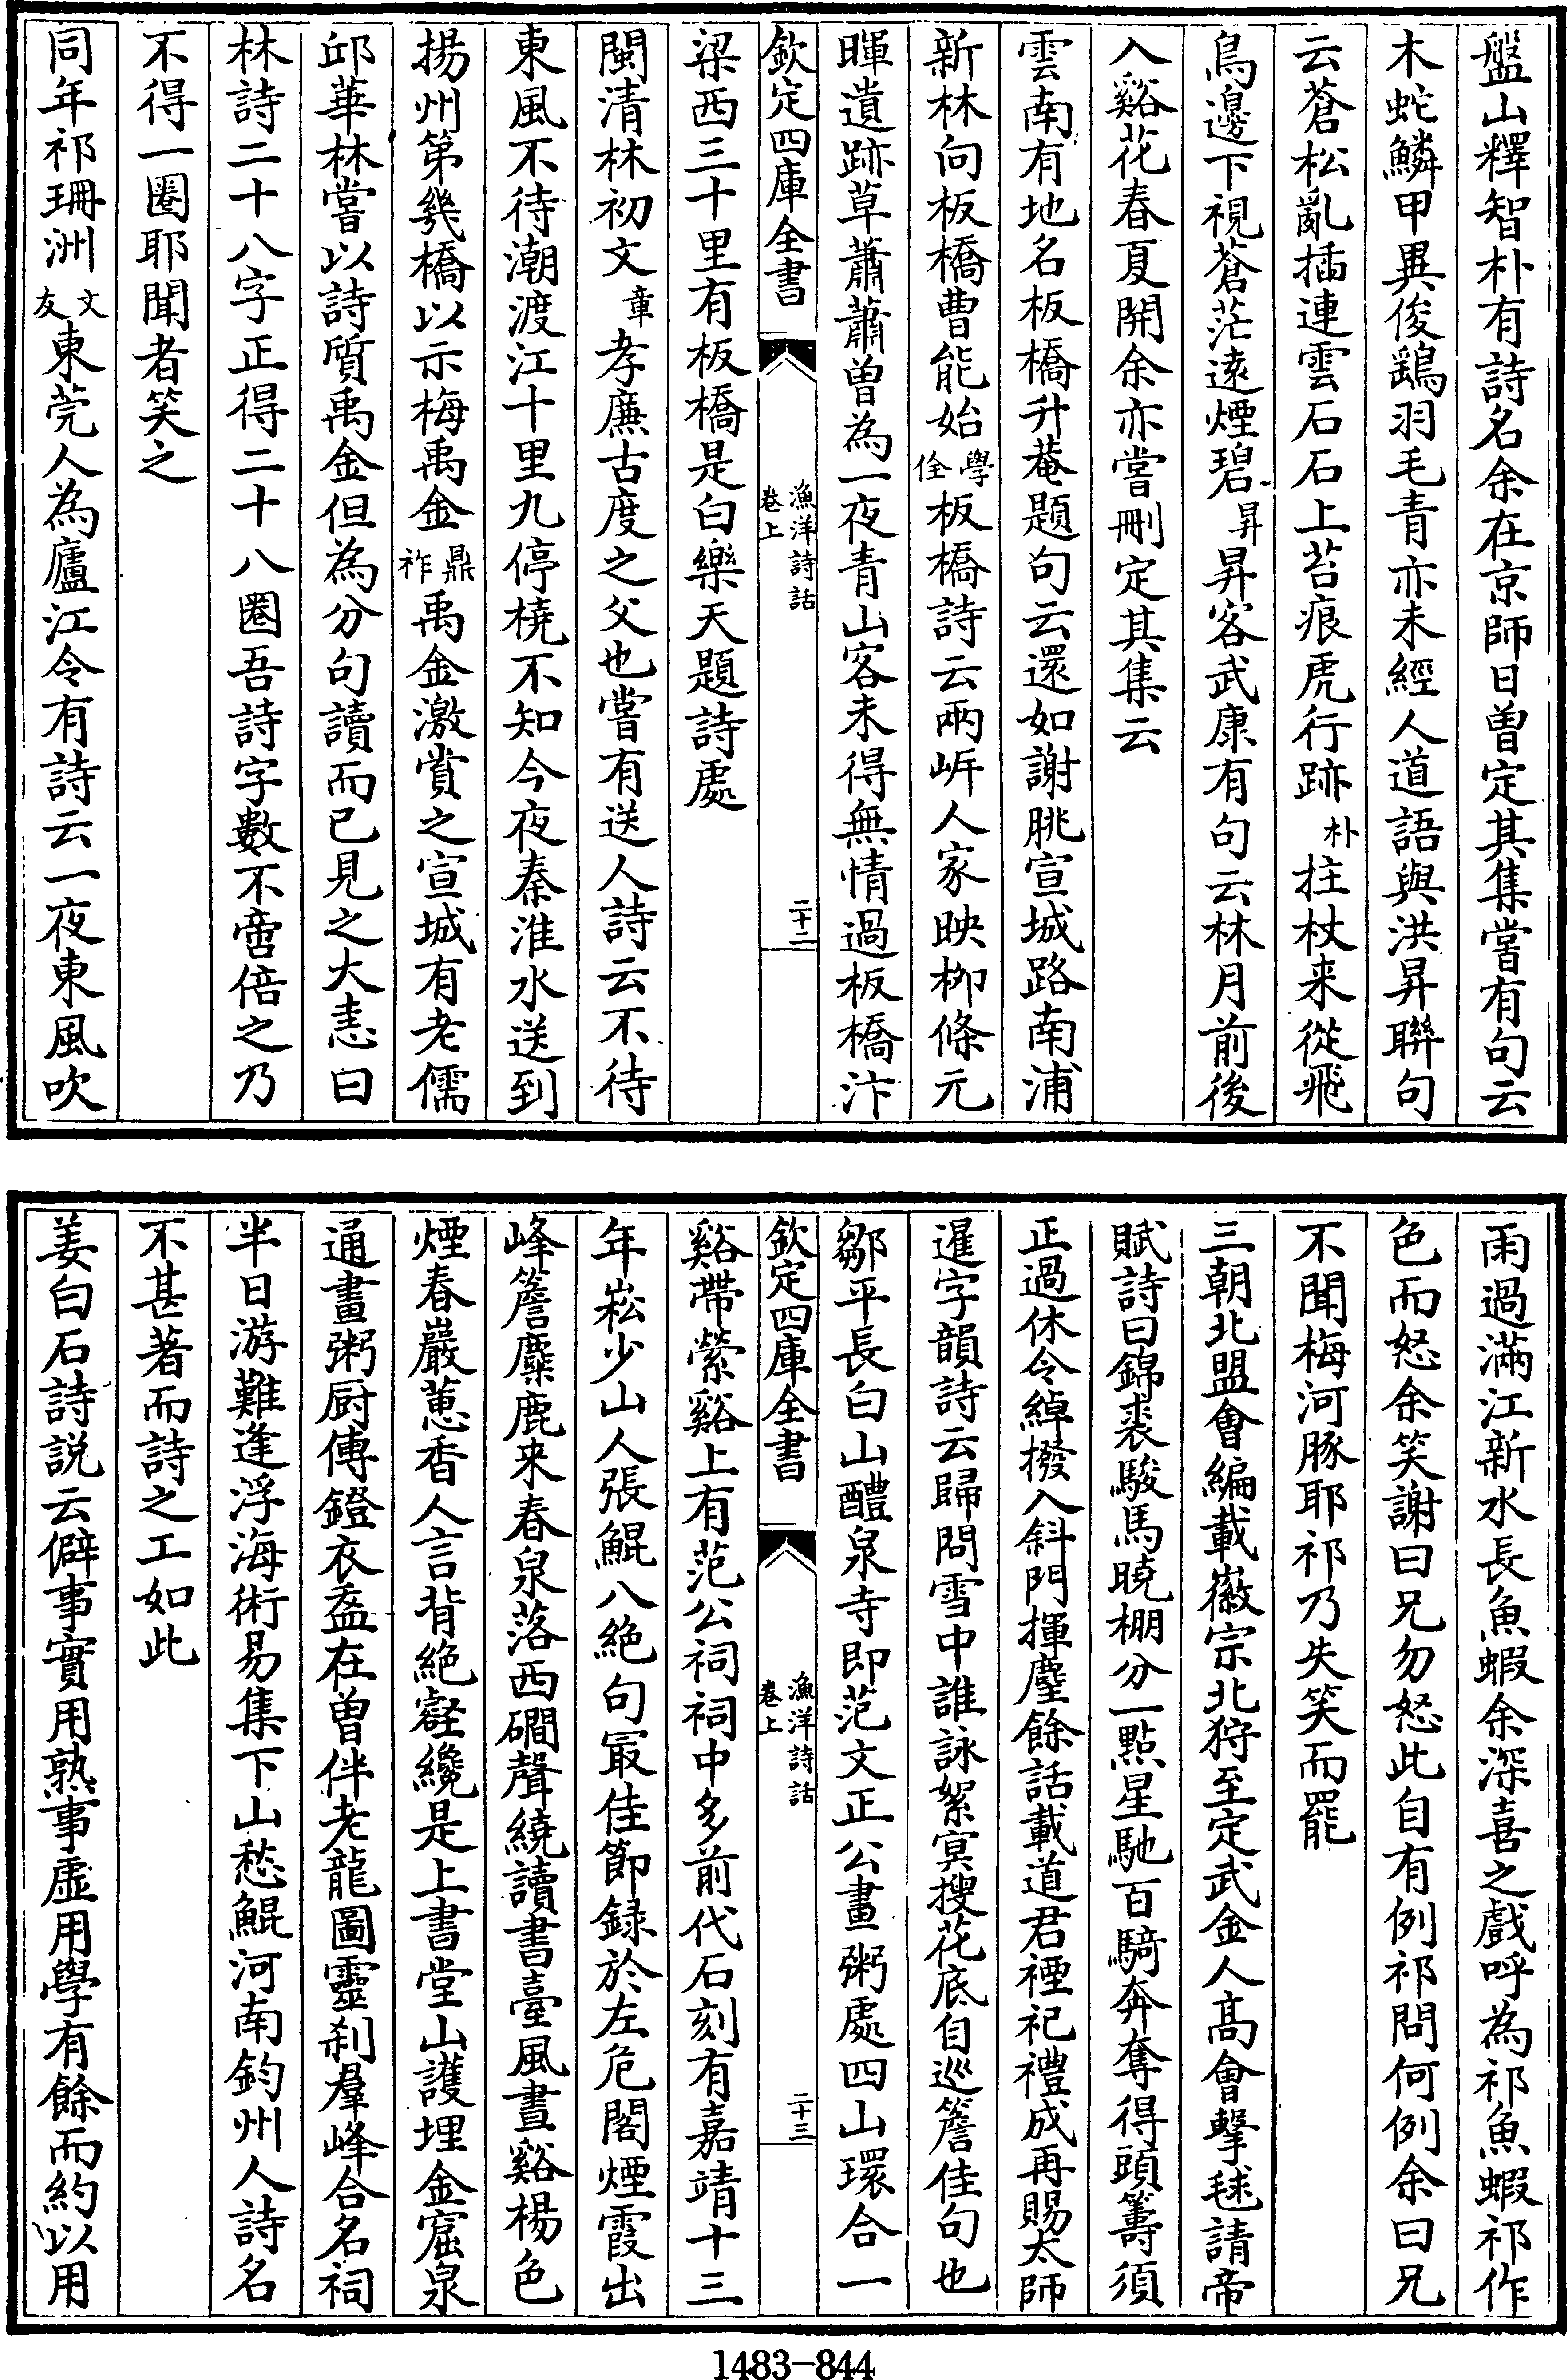 盤山釋智朴有詩名余在京師日曽定其集嘗有句云
木蛇鱗甲異俊鶻羽毛青亦未經人道語與洪昇聯句
云蒼松亂插連雲石石上苔痕虎行跡朴拄杖来從飛
鳥邊下視蒼茫遠煙碧昇昇客武康有句云林月前後
入谿花春夏開余亦嘗刪定其集云
雲南有地名板橋升菴題句云還如謝朓宣城路南浦
新林向板橋曹能始學佺板橋詩云兩岍人家映栁條元
暉遺跡草蕭蕭曽為一夜青山客未得無情過板橋汴
欽定四庫全書
漁洋詩話
卷上
二十二
梁西三十里有板橋是白樂天題詩處
閩清林初文章孝廉古度之父也嘗有送人詩云不待
東風不待潮渡江十里九停橈不知今夜秦淮水送到
揚州第幾橋以示梅禹金鼎祚禹金激賞之宣城有老儒
邱華林嘗以詩質禹金但為分句讀而已見之大恚曰
林詩二十八字正得二十八圈吾詩字數不啻倍之乃
不得一圈耶聞者笑之
同年祁珊洲文友東莞人為廬江令有詩云一夜東風吹
雨過滿江新水長魚蝦余深喜之戲呼為祁魚蝦祁作
色而怒余笑謝曰兄勿怒此自有例祁問何例余曰兄
不聞梅河豚耶祁乃失笑而罷
三朝北盟會編載徽宗北狩至定武金人髙會擊毬請帝
賦詩曰錦裘駿馬曉棚分一點星馳百騎奔奪得頭籌須
正過休令綽撥入斜門揮麈餘話載道君禋祀禮成再賜太師
暹字韻詩云歸問雪中誰詠絮冥搜花底自巡簷佳句也
鄒平長白山醴泉寺即范文正公畫粥處四山環合一
欽定四庫全書
漁洋詩話
卷上
二十三
谿帶縈谿上有范公祠祠中多前代石刻有嘉靖十三
年崧少山人張鯤八絶句㝡佳節録於左危閣煙霞出
峰簷麋鹿来春泉落西磵聲繞讀書臺風晝谿楊色
煙春巖蕙香人言背絶壑纔是上書堂山護埋金窟泉
通畫粥厨傅鐙衣盋在曽伴老龍圖靈刹羣峰合名祠
半日游難逢浮海術易集下山愁鯤河南鈞州人詩名
不甚著而詩之工如此
姜白石詩説云僻事實用熟事虚用學有餘而約以用
1483-844